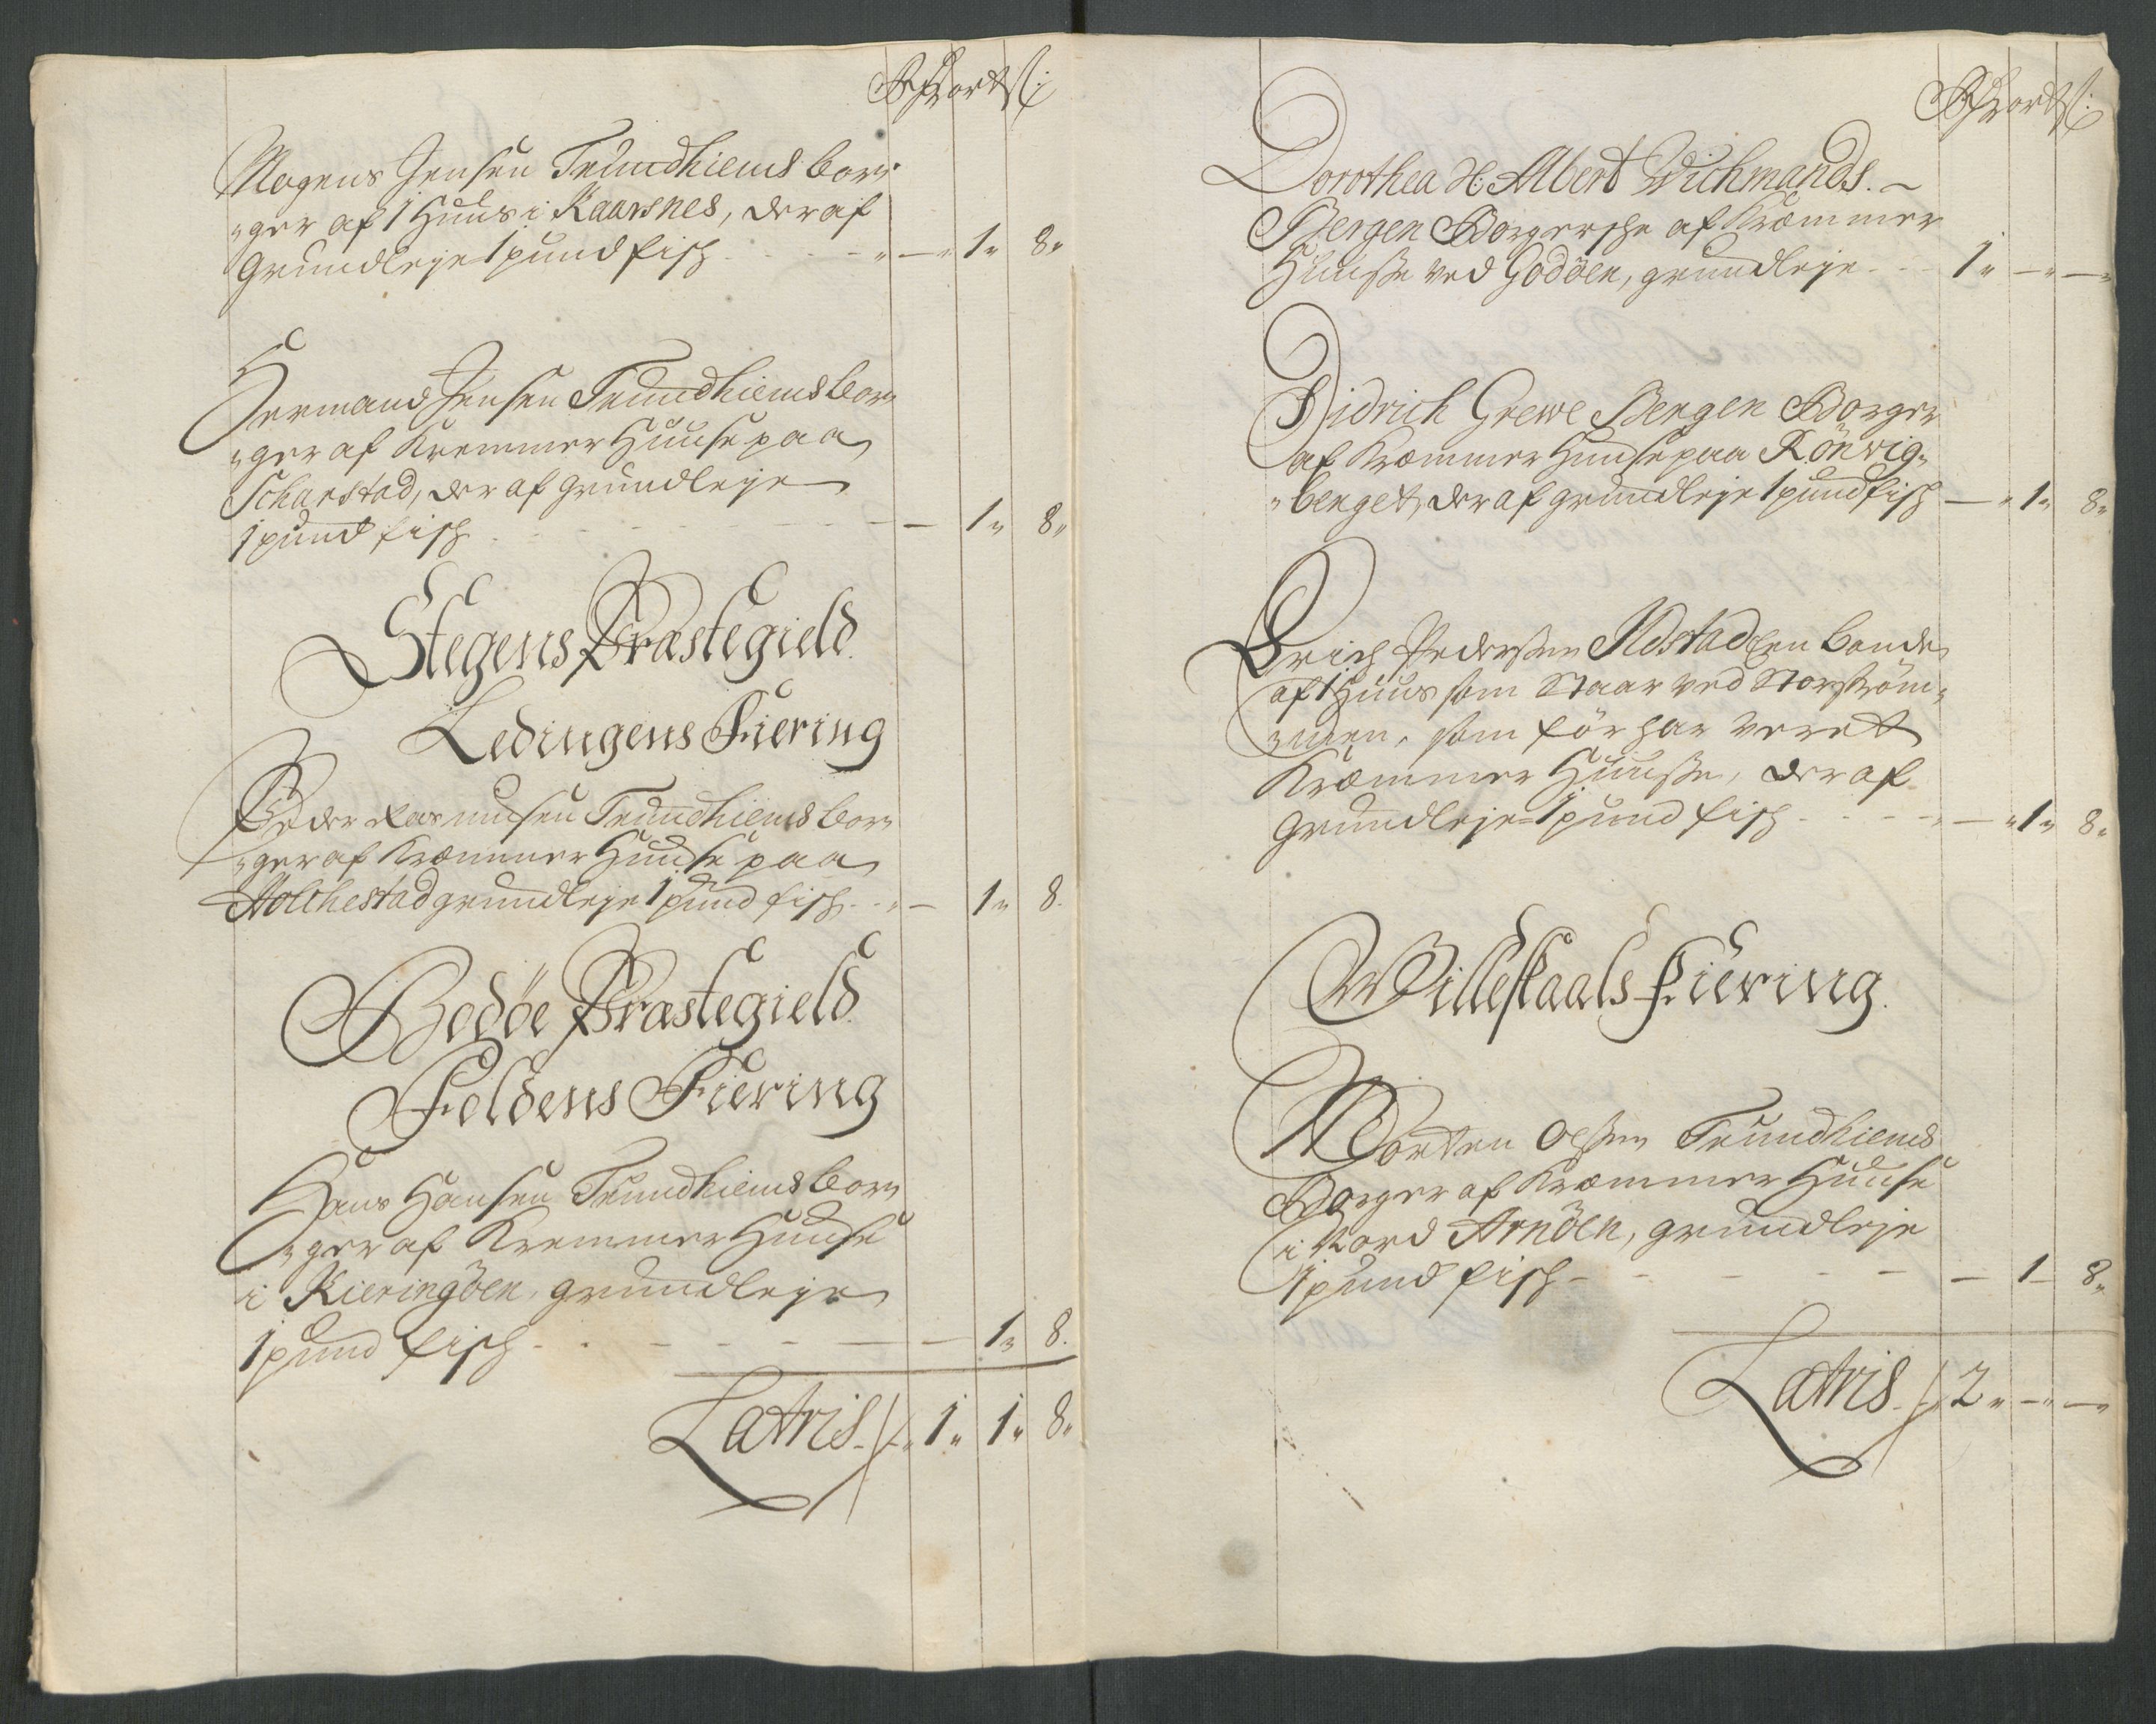 Mogens Jensen Trundhiems bor
ger af 1 Huus i Kaarsnes, der af
Grundleje 1 pund fisch - " 1 " 8 "
Hermand Jensen Trundhiems bor
ger af Kremmer Huuse paa
Scharstad, der af grundleje
1 pund fisch — 1 " 8 "
Stegens Præstegield
Ledingens Fiering
Peder Rasmusen Trundhiems bor
ger af Kræmmer Huuse paa
Holchestad grundleje 1 pund fisch — 1 " 8
Bodöe Præstegield
Foldens Fiering
Hans Hansen Trundhiems bor
ger af Kremmer Huuse
i Kieringöen, grundleje
1 pund fisch — 1 " 8
Latris 1 " 1 " 8 "
Dorothea Albert Wichmands.
Bergen Borgersche af Kræmmer
Huusse ved Godöen, grundleje 1 " — " — "
Didrich Grewe Bergen Borger
af Kræmmer Huuse paa Rönvig
berget, der af grundleje 1 pund fisch — " 1 " 8 "
Erich Pedersen en bonde
af 1 Huus som staar ved Storström
men, som för har veret
Kræmmer Huusse, der af
Grundleje 1 pund fisch — " 1 " 8 "
Willeskaals Fiering.
Morten Olsen Trundhiems
Borger af Kræmmer Huuse
i Nord Arnöen, grundleje
1 pund fisch — 1 — 8 "
Latris 2 " — " — "